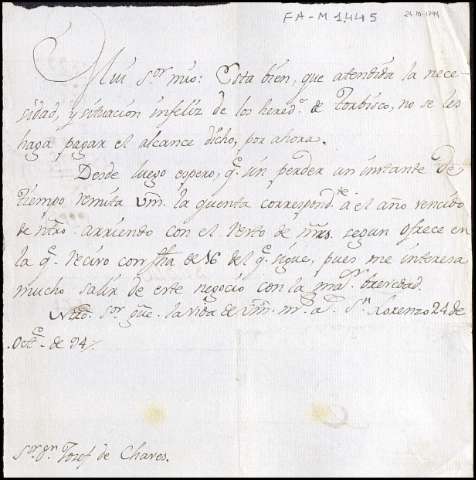 FA-M 1445
24-10-1794
Mui S.or mio: Esta bien, que atendida la nece-
sidad, y situacion infeliz de los hered.s de Torbisco, no se les
haga pagar el alcance dicho, por ahora.
Desde luego espero, q.e sin perder un instante de
tiempo remita Vm. la quenta correspond.te a el año vencido
de ntro. arriendo con el resto de mrs. segun ofrece en
la q.e recivo con fha de 16 del q.e sigue, pues me interesa
mucho salir de este negocio con la maior brevedad.
Ntro. S.or gue. la vida de Vm. m.s a.s S.n Lorenzo 24 de
Oct.e de 94.
S.or D.n Josef de Chaves.